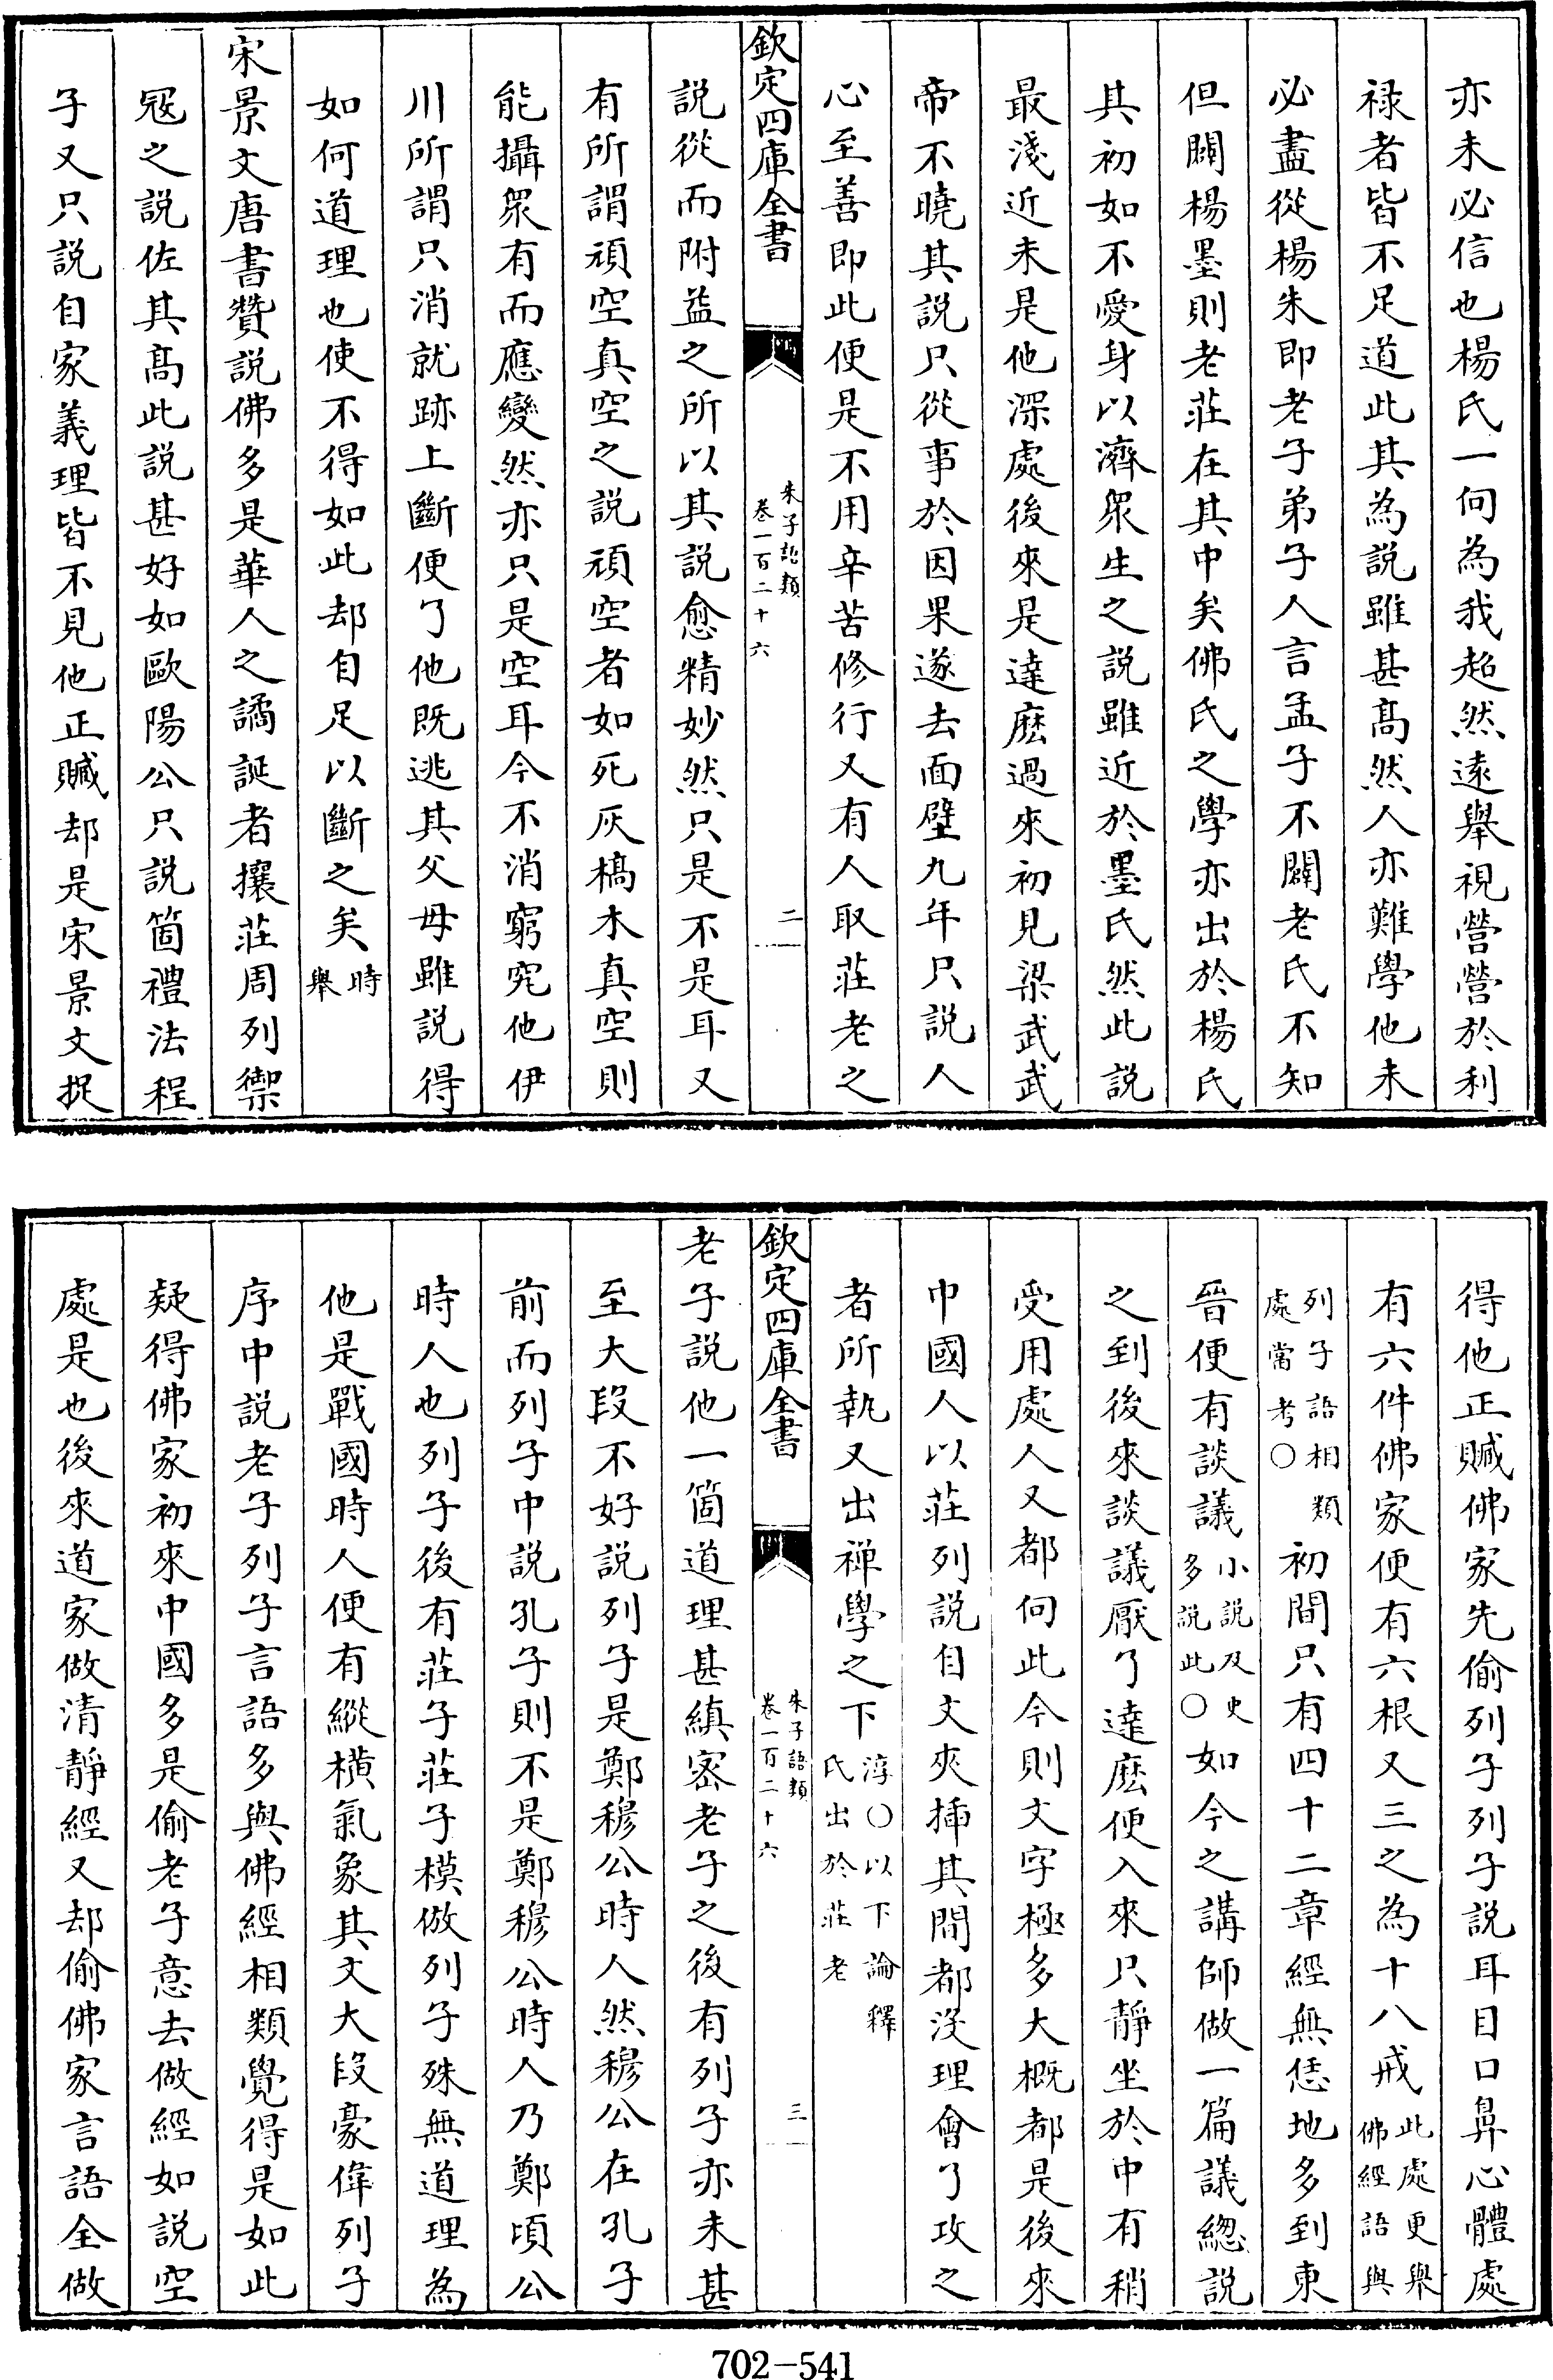 亦未必信也楊氏一向為我超然逺舉視營營於利
禄者皆不足道此其為説雖甚髙然人亦難學他未
必盡從楊朱即老子弟子人言孟子不闢老氏不知
但闢楊墨則老莊在其中矣佛氏之學亦出於楊氏
其初如不愛身以濟衆生之説雖近於墨氏然此説
最淺近未是他深處後來是達麽過來初見梁武武
帝不曉其説只從事於因果遂去面壁九年只説人
心至善即此便是不用辛苦修行又有人取莊老之
欽定四庫全書
朱子語類
卷一百二十六
二
説從而附益之所以其説愈精妙然只是不是耳又
有所謂頑空真空之説頑空者如死灰槁木真空則
能攝衆有而應變然亦只是空耳今不消窮究他伊
川所謂只消就跡上斷便了他既逃其父母雖説得
如何道理也使不得如此却自足以斷之矣時
舉
宋景文唐書贊説佛多是華人之譎誕者攘莊周列禦
冦之説佐其髙此説甚好如歐陽公只説箇禮法程
子又只説自家義理皆不見他正贓却是宋景文捉
得他正贓佛家先偷列子列子説耳目口鼻心體處
有六件佛家便有六根又三之為十八戒此處更舉
佛經語與
列子語相類
處當考○初間只有四十二章經無恁地多到東
晉便有談議小説及史
多説此○如今之講師做一篇議緫説
之到後來談議厭了達麽便入來只靜坐於中有稍
受用處人又都向此今則文字極多大概都是後來
中國人以莊列説自文夾插其間都没理會了攻之
者所執又出禪學之下淳○以下論釋
氏出於莊老
欽定四庫全書
朱子語類
卷一百二十六
三
老子説他一箇道理甚縝宻老子之後有列子亦未甚
至大段不好説列子是鄭穆公時人然穆公在孔子
前而列子中説孔子則不是鄭穆公時人乃鄭頃公
時人也列子後有莊子莊子模倣列子殊無道理為
他是戰國時人便有縱橫氣象其文大段豪偉列子
序中説老子列子言語多與佛經相類覺得是如此
疑得佛家初來中國多是偷老子意去做經如説空
處是也後來道家做清靜經又却偷佛家言語全做
702-541